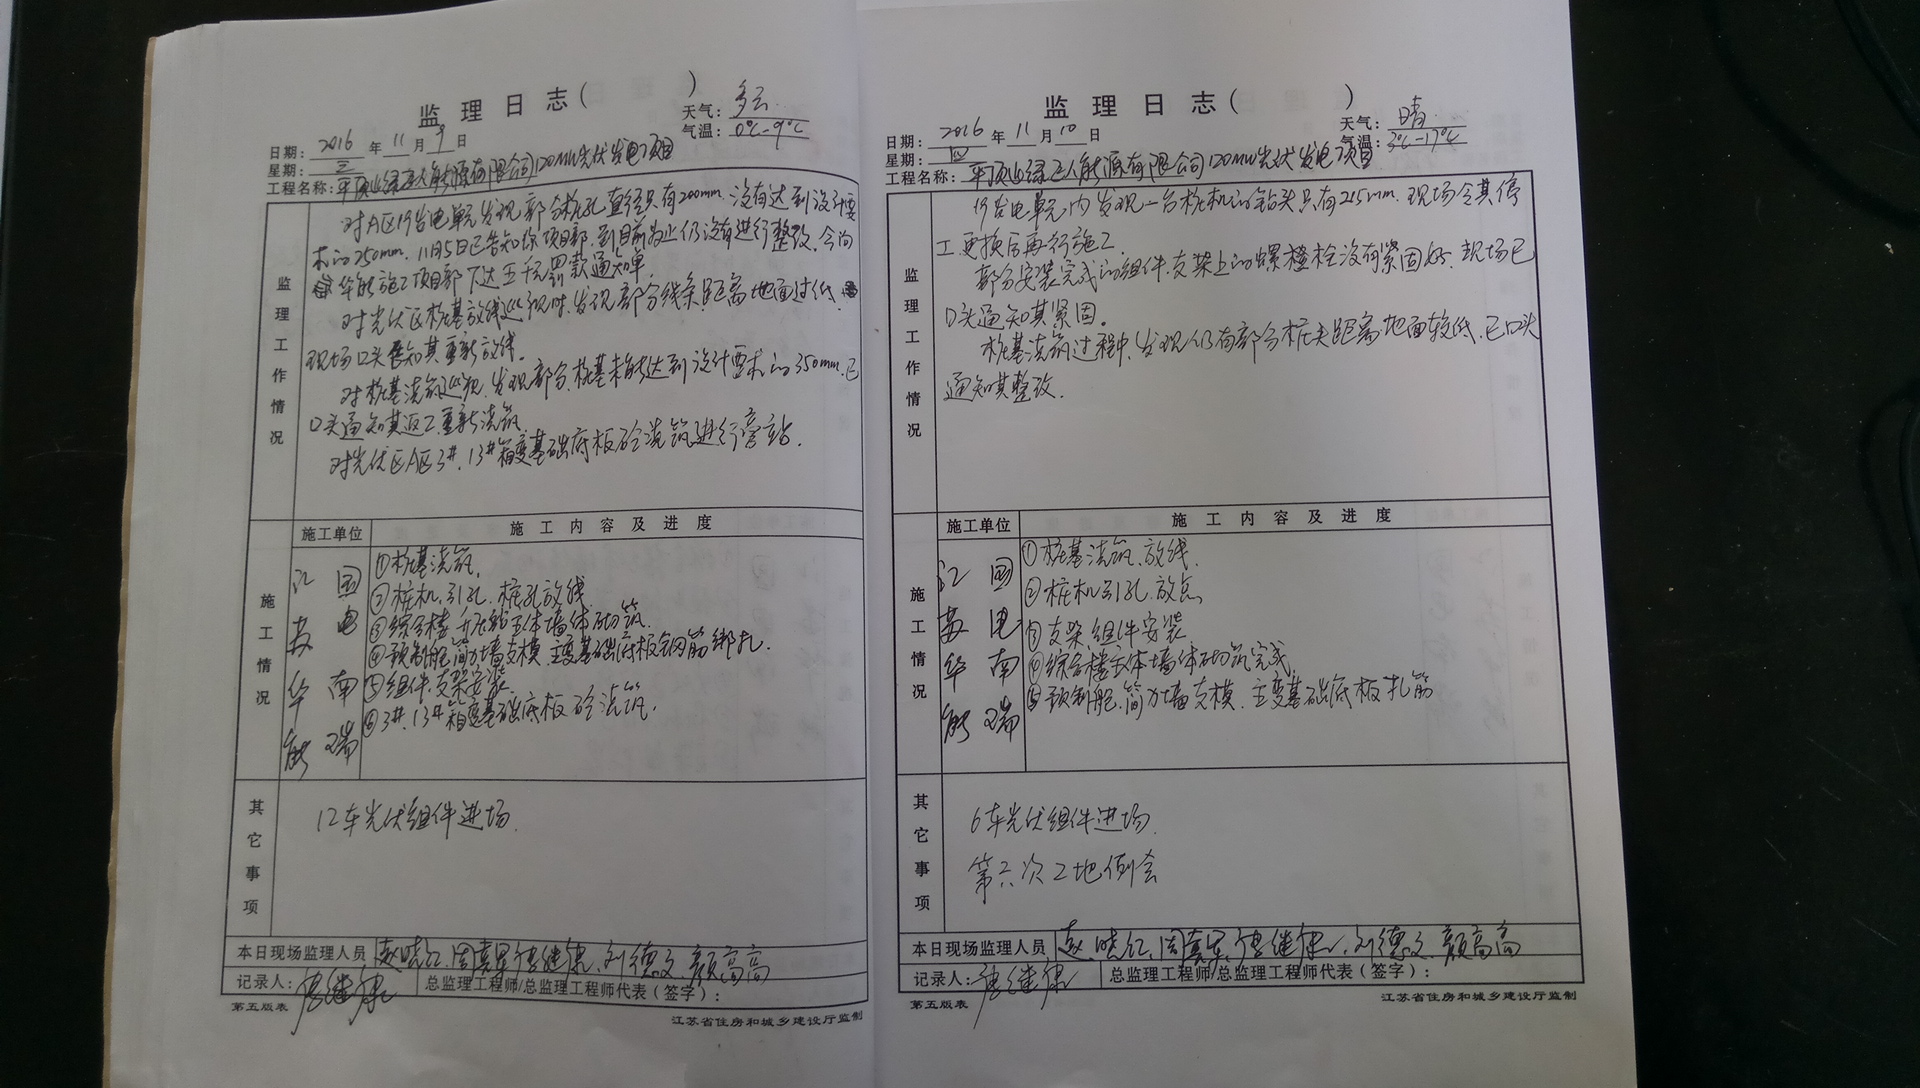 监理日志( )
天气：多云
日期：2016年11月9日
气温：0℃-9℃
星期：三
工程名称：平顶山绿巨人能源有限公司120MW光伏发电项目
监理工作情况
对A区19发电单元发现部分桩孔直径只有200mm.没有达到设计要
求的250mm.11月5日已告知你项目部.到目前为止仍没有进行整改.今向
华能施工项目部下达五千元罚款通知单
对光伏区桩基放线巡视时.发现部分线条距离地面过低.
现场口头告知其重新放线.
对桩基浇筑巡视.发现部分桩基未能达到设计要求的350mm.已
口头通知其返工重新浇筑.
对光伏区A区3#.13#箱变基础底板砼浇筑进行旁站.
施工情况
施工单位
施工内容及进度
江苏华能
国电南瑞
①桩基浇筑.
②桩机引孔.桩孔放线
③综合楼.升压站主体墙体砌筑.
④预制舱.剪力墙支模.主变基础底板钢筋绑扎.
⑤组件.支架安装
⑥3#.13#箱变基础底板砼浇筑.
其它事项
12车光伏组件进场.
本日现场监理人员 赵晓红.周嘉军.唐继康.刘德文.颜高高
记录人：唐继康
总监理工程师/总监理工程师代表(签字)：
第五版表
江苏省住房和城乡建设厅监制
监理日志( )
天气：晴
日期：2016年11月10日
气温：3℃-17℃
星期：四
工程名称：平顶山绿巨人能源有限公司120MW光伏发电项目
监理工作情况
19发电单元内发现一台桩机的钻头只有215mm.现场令其停
工.更换后再行施工
部分安装完成的组件.支架上的螺栓没有紧固好.现场已
口头通知其紧固。
桩基浇筑过程中.发现仍有部分桩头距离地面较低.已口头
通知其整改.
施工情况
施工单位
施工内容及进度
江苏华能
国电南瑞
①桩基浇筑.放线.
②桩机引孔.放点
③支架.组件安装
④综合楼主体墙体砌筑完成
⑤预制舱.剪力墙支模.主变基础底板扎筋
其它事项
6车光伏组件进场.
第六次工地例会
本日现场监理人员 赵晓红.周嘉军.唐继康.刘德文.颜高高
记录人：唐继康
总监理工程师/总监理工程师代表(签字)：
第五版表
江苏省住房和城乡建设厅监制